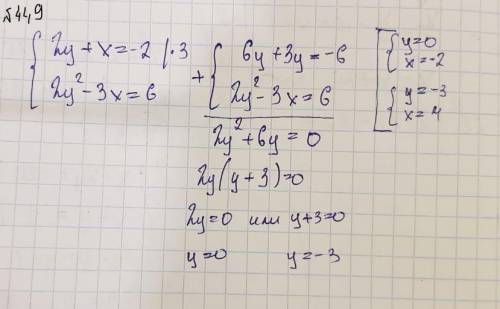 №449
{2y + x = -2 | · 3
2y² - 3x = 6
+ {6y + 3y = -6
2y² - 3x = 6
2y² + 6y = 0
2y(y + 3) = 0
2y = 0 или y + 3 = 0
y = 0 y = -3
[{y = 0
x = -2
{y = -3
x = 4